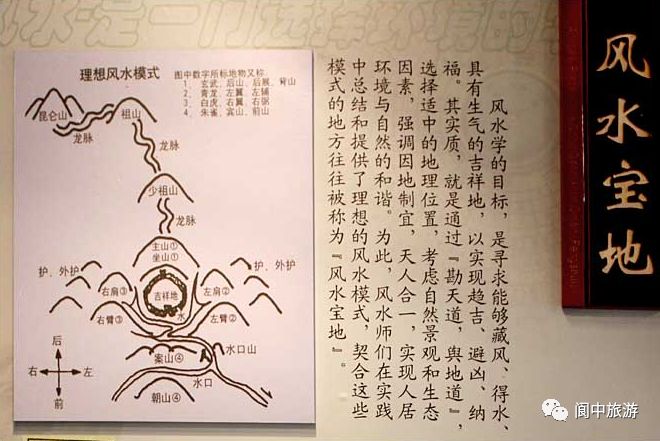 风水宝地
理想风水模式
图中数字所标地物又称.
1、玄武、后山、后展、背山
2、青龙、左翼、左辅
3、白虎、右翼、右弼
4、朱雀、宾山、前山
昆仑山
祖山
龙脉
龙脉
少祖山
龙脉
主山①
坐山①
护、外护
护、外护
右肩③
吉祥地
左肩②
水
右臂③
左臂②
水口山
案山④
水口
朝山④
后
右
左
前
风水学的目标，是寻求能够藏风、得水、
具有生气的吉祥地，以实现趋吉、避凶、纳
福。其实质，就是通过『勘天道，舆地道』，
选择适中的地理位置，考虑自然景观和生态
因素，强调因地制宜，天人合一，实现人居
环境与自然的和谐。为此，风水师们在实践
中总结和提供了理想的风水模式，契合这些
模式的地方往往被称为『风水宝地』。
阆中旅游